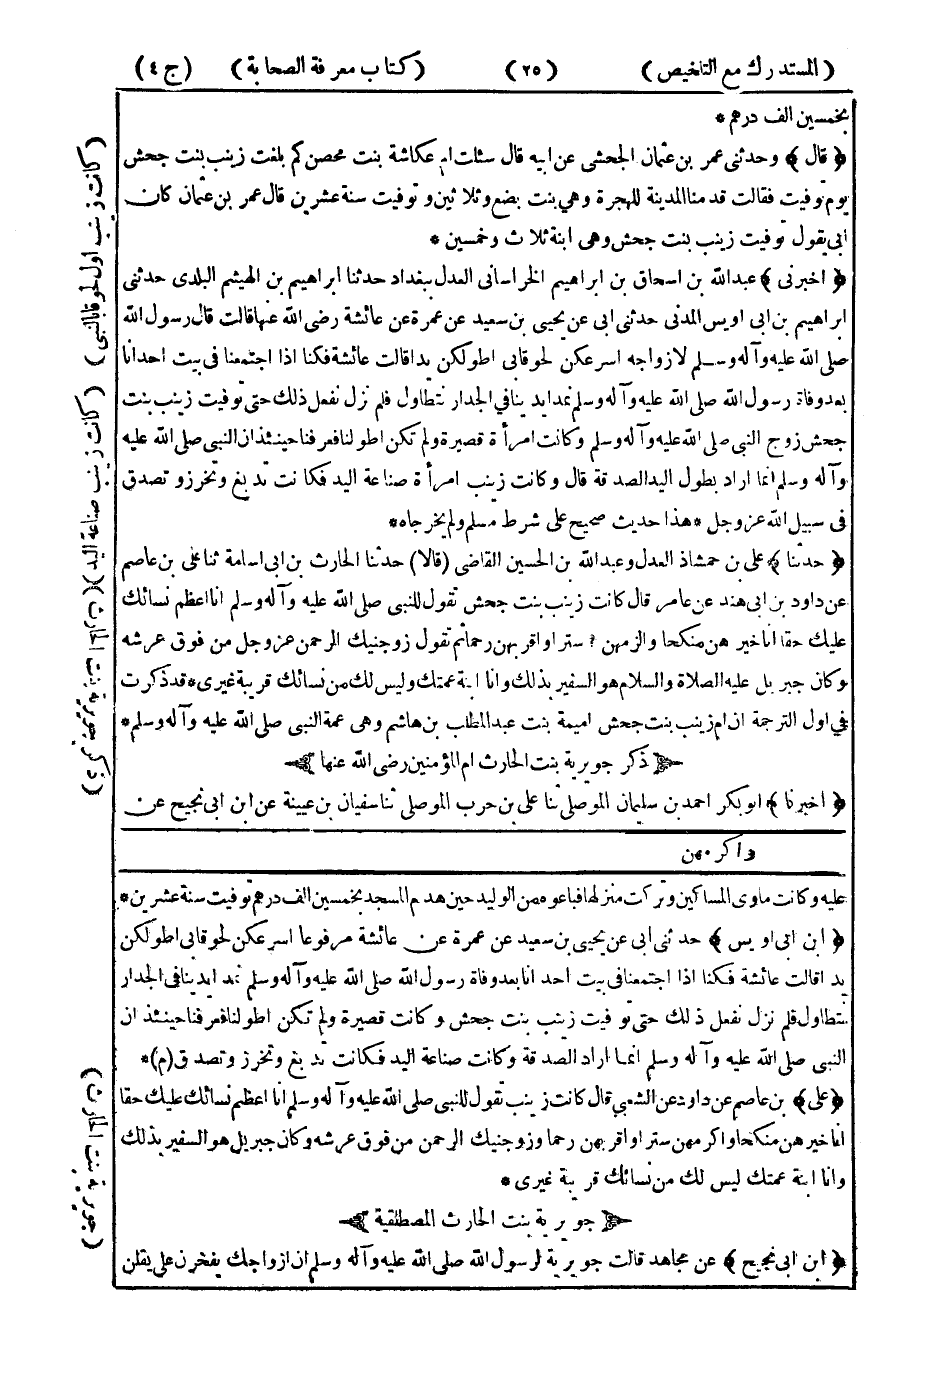 (المستدرك مع التلخيص) (٢٥) (كتاب معرفة الصحابة) (ج ٤)
بخمسين الف درهم *
﴿ قال ﴾ وحدثنى عمر بن عثمان الجحشى عن ابيه قال سئلت ام عكاشة بنت محصن كم بلغت زينب بنت جحش
يوم توفيت فقالت قدمنا المدينة للهجرة وهى بنت بضع وثلاثين وتوفيت سنة عشرين قال عمر بن عثمان كان
ابى يقول توفيت زينب بنت جحش وهى ابنة ثلاث وخمسين *
﴿ اخبرنى ﴾ عبدالله بن اسحاق بن ابراهيم الخراسانى العدل ببغداد حدثنا ابراهيم بن الهيثم البلدى حدثنى
ابراهيم بن ابى اويس المدنى حدثنى ابى عن يحيى بن سعيد عن عمرة عن عائشة رضى الله عنها قالت قال رسول الله
صلى الله عليه وآله وسلم لازواجه اسرعكن لحوقابى اطولكن يدا قالت عائشة فكنا اذا اجتمعنا فى بيت احدانا
بعد وفاة رسول الله صلى الله عليه وآله وسلم نمد ايدينا فى الجدار نتطاول فلم نزل نفعل ذلك حتى توفيت زينب بنت
جحش زوج النبى صلى الله عليه وآله وسلم وكانت امرأة قصيرة ولم تكن اطولنا فعرفنا حينئذ ان النبى صلى الله عليه
وآله وسلم انما اراد بطول اليد الصدقة قال وكانت زينب امرأة صناعة اليد فكانت تدبغ وتخرز وتصدق
فى سبيل الله عز وجل * هذا حديث صحيح على شرط مسلم ولم يخرجاه *
﴿ حدثنا ﴾ على بن حمشاذ العدل وعبدالله بن الحسين القاضى (قالا) حدثنا الحارث بن ابى اسامة ثنا على بن عاصم
عن داود بن ابى هند عن عامر قال كانت زينب بنت جحش تقول للنبى صلى الله عليه وآله وسلم انا اعظم نسائك
عليك حقا انا خير هن منكحا والزمهن ؟ سترا واقربهن رحما ثم تقول زوجنيك الرحمن عز وجل من فوق عرشه
وكان جبريل عليه الصلاة والسلام هو السفير بذلك وانا ابنة عمتك وليس لك من نسائك قريبة غيرى * قد ذكرت
فى اول الترجمة ان ام زينب بنت جحش اميمة بنت عبد المطلب بن هاشم وهى عمة النبى صلى الله عليه وآله وسلم *
ذكر جويرية بنت الحارث ام المؤمنين رضى الله عنها
﴿ اخبرنا ﴾ ابو بكر احمد بن سليمان الموصلى ثنا على بن حرب الموصلى ثنا سفيان بن عيينة عن ابن ابى نجيح عن
واكرمهن
عليه وكانت ماوى المساكين وتركت منزلها فباعوه من الوليد حين هدم المسجد بخمسين الف درهم توفيت سنة عشرين *
﴿ ابن ابى اويس ﴾ حدثنى أبى عن يحيى بن سعيد عن عمرة عن عائشة مرفوعا اسرعكن لحوقابى اطولكن
يدا قالت عائشة فكنا اذا اجتمعنا فى بيت احدانا بعد وفاة رسول الله صلى الله عليه وآله وسلم نمد ايدينا فى الجدار
نتطاول فلم نزل نفعل ذلك حتى توفيت زينب بنت جحش وكانت قصيرة ولم تكن اطولنا فعرفنا حينئذ ان
النبى صلى الله عليه وآله وسلم انما اراد الصدقة وكانت صناعة اليد فكانت تدبغ وتخرز وتصدق (م) *
﴿ على ﴾ بن عاصم عن داود عن الشعبى قال كانت زينب تقول للنبى صلى الله عليه وآله وسلم انا اعظم نسائك عليك حقا
انا خير هن منكحا واكرمهن سترا واقربهن رحما وزوجنيك الرحمن من فوق عرشه وكان جبريل هو السفير بذلك
وانا ابنة عمتك ليس لك من نسائك قريبة غيرى *
جويرية بنت الحارث المصطلقية
﴿ ابن ابى نجيح ﴾ عن مجاهد قالت جويرية لرسول الله صلى الله عليه وآله وسلم ان ازواجك يفخرن على يقلن
(كانت زينب اول لحوقا بالنبى)
(كانت زينب صناعة اليد)
(ذكر جويرية بنت الحارث)
(جويرية بنت الحارث)